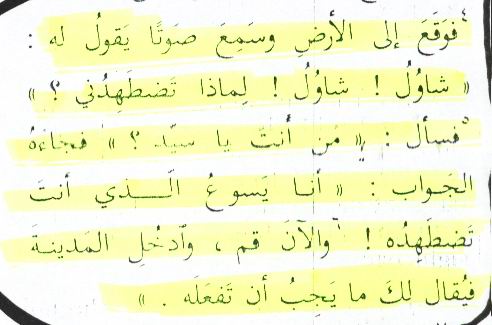 ⁴فوَقَعَ إلى الأرضِ وسَمِعَ صَوتًا يَقولُ له :
« شاوُلُ ! شاوُلُ ! لِماذا تَضطَهِدُني ؟ »
⁵فسألَ : « مَن أنتَ يا سيِّد ؟ » فجاءَهُ
الجَواب : « أنا يَسوعُ الّـذي أنتَ
تَضطَهِدُه ! ⁶والآنَ قم ، وٱدخُلِ المَدينـةَ
فيُقال لكَ ما يَجِبُ أن تَفعَلَه . »